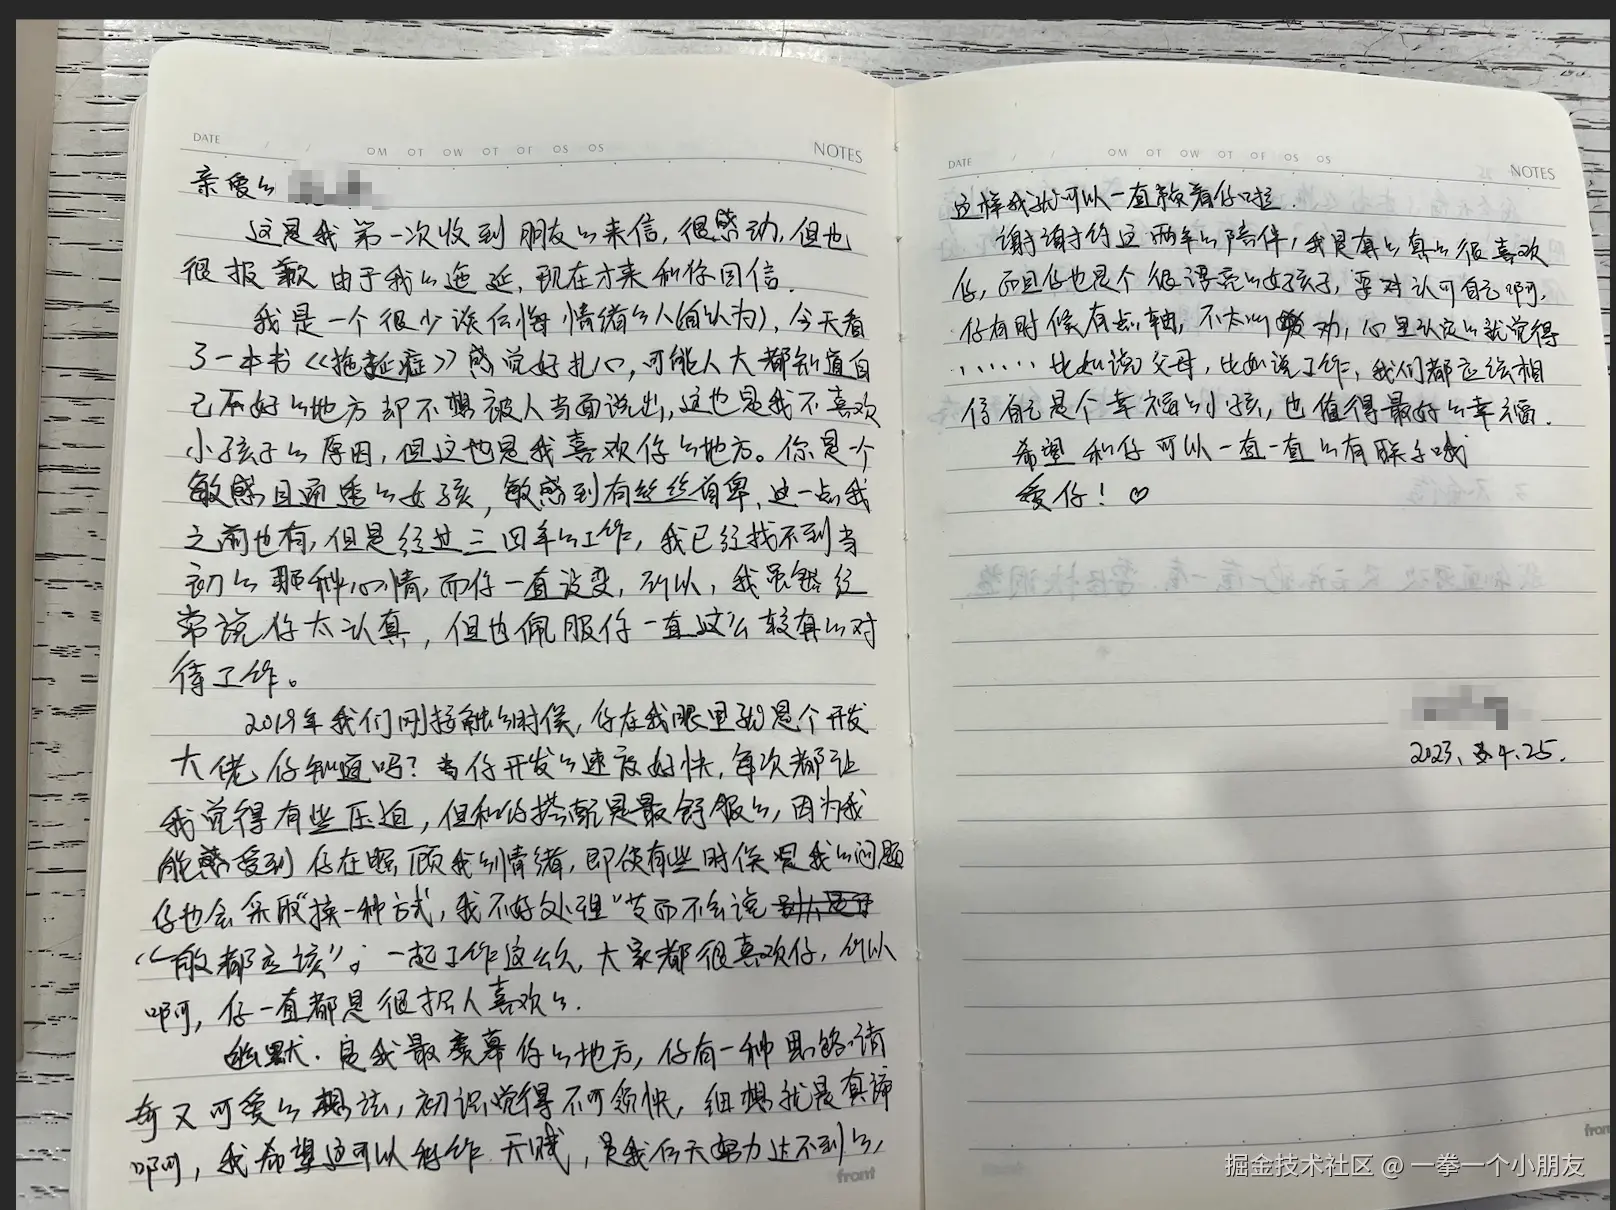 DATE / / OM OT OW OT OF OS OS NOTES
亲爱的
这是我第一次收到朋友的来信,很感动,但也
很报歉由于我的拖延,现在才来和你回信.
我是一个很少诶后悔情绪的人(自认为),今天看
了一本书《拖延症》感觉好扎心,可能人大都知道自
己不好的地方却不想被人当面说出,这也是我不喜欢
小孩子的原因,但这也是我喜欢你的地方。你是一个
敏感且通透的女孩,敏感到有丝丝自卑,这一点我
之前也有,但是经过三四年的工作,我已经找不到当
初的那种心情,而你一直没变,所以,我虽然经
常说你太认真,但也佩服你一直这么较真的对
待工作。
2019年我们刚接触的时候,你在我眼里就是个开发
大佬,你知道吗?当你开发的速度好快,每次都让
我觉得有些压迫,但和你搭配是最舒服的,因为我
能感受到你在照顾我的情绪,即使有些时候是我的问题
你也会采取"换一种方式,我不好处理"等而不会说
"一般都应该"。一起工作这么久,大家都很喜欢你,所以
啊,你一直都是很招人喜欢的.
幽默.是我最羡慕你的地方,你有一种思路清
奇又可爱的想法,初识觉得不可愉快,细想就是真谛
啊,我希望这可以称作天赋,是我后天努力达不到的,
front
DATE / / OM OT OW OT OF OS OS NOTES
这样我就可以一直赖着你啦.
谢谢你这两年的陪伴,我是真的真的很喜欢
你,而且你也是个很漂亮的女孩子,要对认可自己啊,
你有时候有点轴,不太心动,心里认定的就觉得
......比如说父母,比如说工作,我们都应该相
信自己是个幸福的小孩,也值得最好的幸福.
希望和你可以一直一直的有联系哦
爱你!♡
2023.4.25.
front
掘金技术社区 @ 一拳一个小朋友